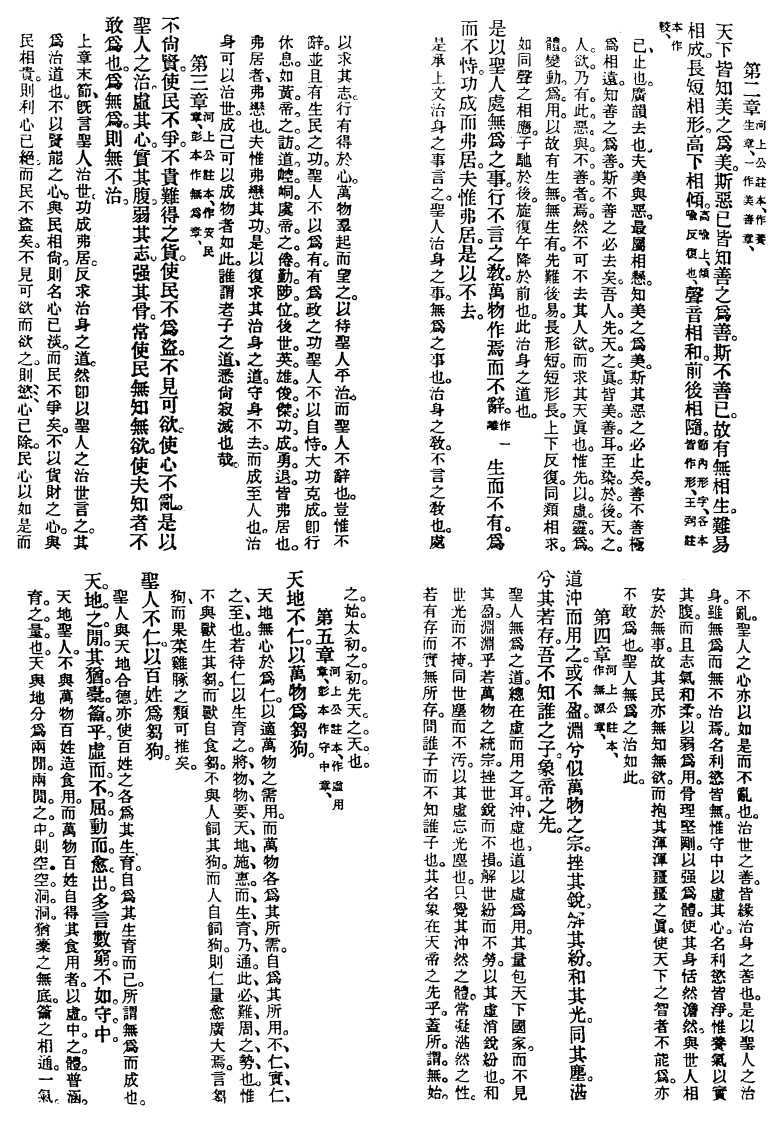 第二章 河上公註本、作養生章、一作美善章、
天下皆知美之爲美。斯惡已。皆知善之爲善。斯不善已。故有無相生。難易
相成。長短相形。高下相傾。高喩上、傾喩反復也、聲音相和。前後相隨。節內形字、各本皆作形、王弼註
本作較、
已。止也。廣韻去也。夫美與惡。最屬相懸。知美之爲美。斯其惡之必止矣。善不善極
爲相遠。知善之爲善。斯不善之必去矣。吾人先天之眞。皆美善耳。至染於後天之
人欲。乃有此惡與不善者焉。然不可不去其人欲。而求其天眞也。惟先以虛靈爲
體。變動爲用。以故有生無。無生有。先難後易。長形短。短形長。上下反復。同類相求。
如同聲之相應。子馳於後。旋復午降於前也。此治身之道也。
是以聖人處無爲之事。行不言之敎。萬物作焉而不辭。一作離 生而不有。爲
而不恃。功成而弗居。夫惟弗居。是以不去。
是承上文治身之事言之。聖人治身之事。無爲之事也。治身之敎。不言之敎也。處
以求其志。行有得於心。萬物羣起而望之。以待聖人平治。而聖人不辭也。豈惟不
辭。並且有生民之功。聖人不以爲有。有爲政之功。聖人不以自恃。大功克成。卽行
休息。如黃帝之訪道崆峒。虞帝之倦勤陟位。後世英雄俊傑。功成勇退。皆弗居也。
弗居者。弗戀也。夫惟弗戀其功。是以復求其治身之道。守身不去。而成至人也。治
身可以治世。成己可以成物者如此。誰謂老子之道。悉尙寂滅也哉。
第三章 河上公註本、作安民章、彭本作無爲章、
不尙賢。使民不爭。不貴難得之貨。使民不爲盜。不見可欲。使心不亂。是以
聖人之治。虛其心。實其腹。弱其志。强其骨。常使民無知無欲。使夫知者不
敢爲也。爲無爲。則無不治。
上章末節。旣言聖人治世。功成弗居。反求治身之道。然卽以聖人之治世言之。其
爲治道也。不以賢能之心與民相尙。則名心已淡。而民不爭矣。不以貨財之心與
民相貴。則利心已絕。而民不盜矣。不見可欲而欲之。則慾心已除。民心以如是而
不亂。聖人之心。亦以如是而不亂也。治世之善。皆緣治身之善也。是以聖人之治
身。雖無爲而無不治焉。名利慾皆無。惟守中以虛其心。名利慾皆淨。惟養氣以實
其腹。而且志氣和柔。以弱爲用。骨理堅剛。以强爲體。使其身恬然澹然。與世人相
安於無事。故其民亦無知無欲。而抱其渾渾噩噩之眞。使天下之智者。不能爲。亦
不敢爲也。聖人無爲之治如此。
第四章 河上公註本、作無源章、
道沖而用之或不盈。淵兮似萬物之宗。挫其銳。解其紛。和其光。同其塵。湛
兮其若存。吾不知誰之子。象帝之先。
聖人無爲之道。總在虛而用之耳。沖。虛也。道以虛爲用。其量包天下國家。而不見
其盈。淵淵乎若萬物之統宗。挫世銳而不損。解世紛而不勞。以其虛消銳紛也。和
世光而不掩。同世塵而不汚。以其虛忘光塵也。只覺其沖然之體。常凝湛然之性。
若有存而實無所存。問誰子而不知誰子也。其名象在天帝之先乎。蓋所謂無始
之始。太初之初。先天之天也。
第五章 河上公註本、作虛用章、彭本作守中章、
天地不仁。以萬物爲芻狗。
天地無心於爲仁。以適萬物之需用。而萬物各爲其所需。自爲其所用。不仁、實仁、
之至也。若待仁以生育之、將物物要天地施惠而生育。乃、通此必難周之勢也。惟
不與獸生其芻。而獸自食芻。不與人飼其狗。而人自飼狗。則仁量愈廣大焉。言芻
狗。而果菜雞豚之類可推矣。
聖人不仁。以百姓爲芻狗。
聖人與天地合德。亦使百姓之各爲其生育。自爲其生育而已。所謂無爲而成也。
天地之間。其猶橐籥乎。虛而不屈。動而愈出。多言數窮。不如守中。
天地聖人。不與萬物百姓造食用。而萬物百姓自得其食用者。以虛中之體。普涵
育之量也。天與地分爲兩間。兩間之中。則空空洞洞。猶橐之無底。籥之相通。一氣